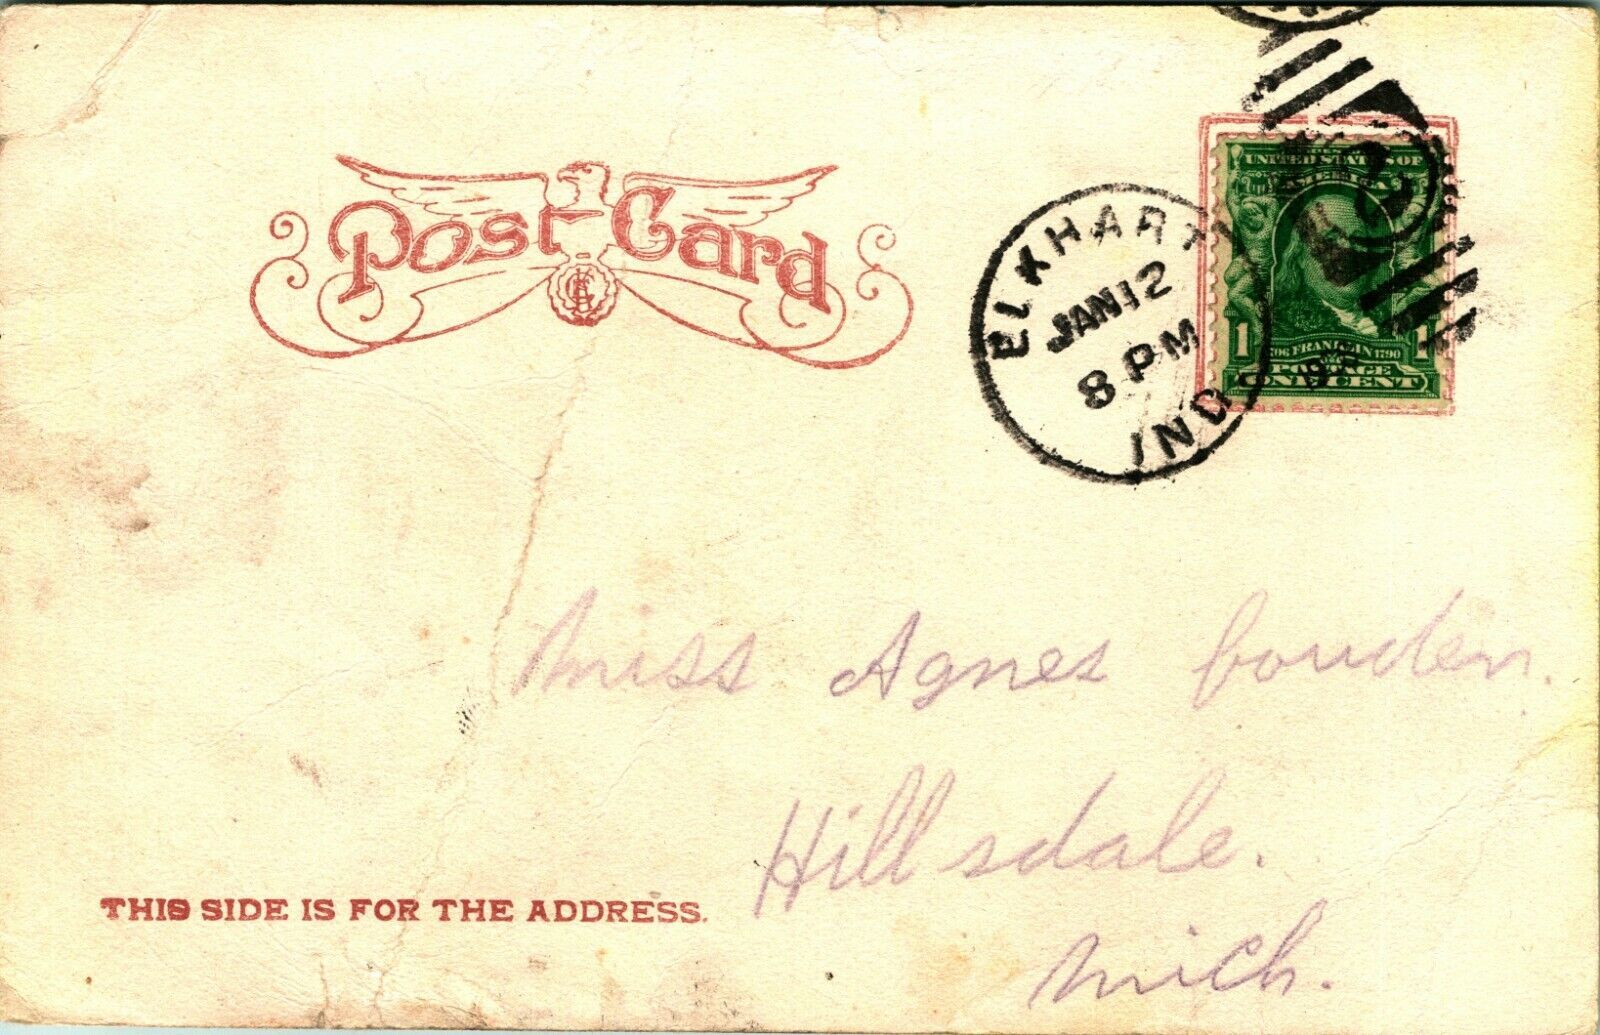 Post Card
ELKHART
JAN 12
8 PM
IND
UNITED STATES OF
AMERICA
1 1
FRANKLIN 1790
POSTAGE
ONE CENT
Miss Agnes
Hillsdale.
Mich.
THIS SIDE IS FOR THE ADDRESS.